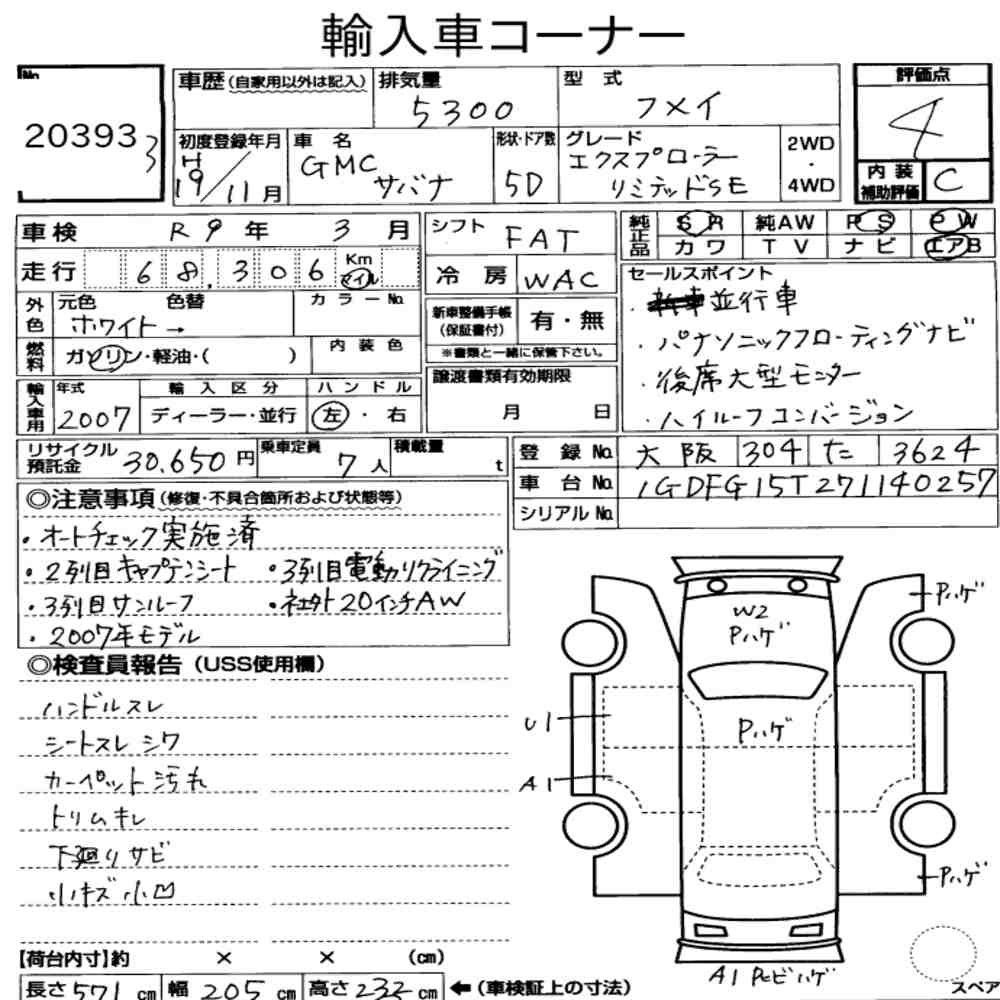 輸入車コーナー
No.
20393
3
車歴(自家用以外は記入)
排気量
5300
型 式
フメイ
評価点
4
内装
補助評価
C
初度登録年月
H
19/11月
車 名
GMC
サバナ
形状・ドア数
5D
グレード
エクスプローラー
リミテッドSE
2WD
・
4WD
車検 R9年 3月
走行 68,306 Km
マイル
外色
元色 色替
ホワイト→
カラーNo.
燃料
ガソリン・軽油・( )
内装色
輸入車用
年式
2007
輸入区分
ディーラー・並行
ハンドル
左・右
シフト FAT
冷房 WAC
新車整備手帳
(保証書付)
有・無
※書類と一緒に保管下さい。
譲渡書類有効期限
月 日
純正品
SR 純AW PS PW
カワ TV ナビ エアB
セールスポイント
・並行車
・パナソニックフローティングナビ
・後席大型モニター
・ハイルーフコンバージョン
リサイクル
預託金
30,650円
乗車定員
7人
積載量
t
登録No. 大阪 304 た 3624
車台No. 1GDFG15T271140257
シリアルNo.
◎注意事項(修復・不具合箇所および状態等)
・オートチェック実施済
・2列目キャプテンシート ・3列目電動リクライニング
・3列目サンルーフ ・社外20インチAW
・2007年モデル
◎検査員報告(USS使用欄)
ハンドルスレ
シートスレ シワ
カーペット汚れ
トリムキレ
下廻りサビ
小キズ小凹
W2
Pハゲ
Pハゲ
U1
Pハゲ
A1
Pハゲ
A1 Pヒビハゲ
スペア
【荷台内寸】約 × × (cm)
長さ571cm 幅205cm 高さ232cm ←(車検証上の寸法)